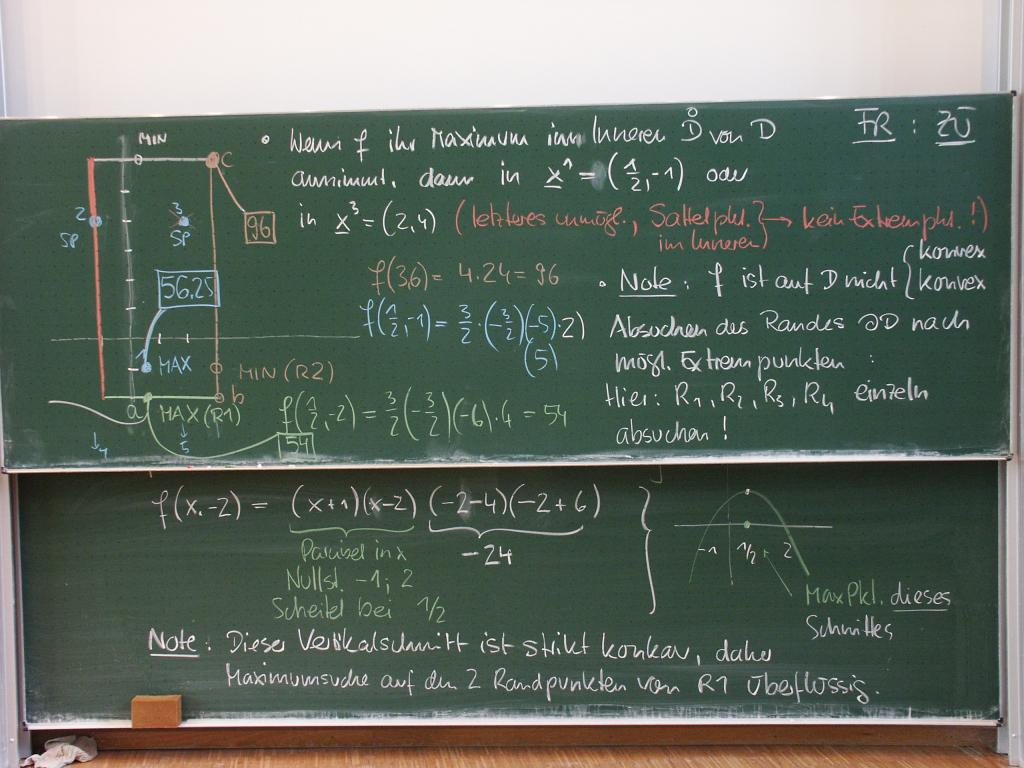 FR : ZÜ
MIN
C
2
SP
3
SP
96
56,25
1 MAX
MIN (R2)
a
b
MAX (R1)
54
↓4
↓5
• Wenn f ihr Maximum im Inneren D̊ von D
annimmt, dann in x¹ = (1/2, -1) oder
in x³ = (2,4) (letzteres unmögl., Sattelpkt. im Inneren} → kein Extrempkt.!)
f(3,6) = 4·24 = 96
f(1/2,-1) = 3/2·(-3/2)(-5)·2)
(5)
f(1/2,-2) = 3/2(-3/2)(-6)·4 = 54
• Note: f ist auf D nicht { konvex
konvex
Absuchen des Randes ∂D nach
mögl. Extrempunkten :
Hier: R1, R2, R3, R4 einzeln
absuchen!
f(x,-2) = (x+1)(x-2) (-2-4)(-2+6) }
-24
Parabel in x
Nullst. -1; 2
Scheitel bei 1/2
-1 1/2 2
MaxPkt. dieses
Schnittes
Note: Dieser Vertikalschnitt ist strikt konkav, daher
Maximumsuche auf den 2 Randpunkten von R1 überflüssig.